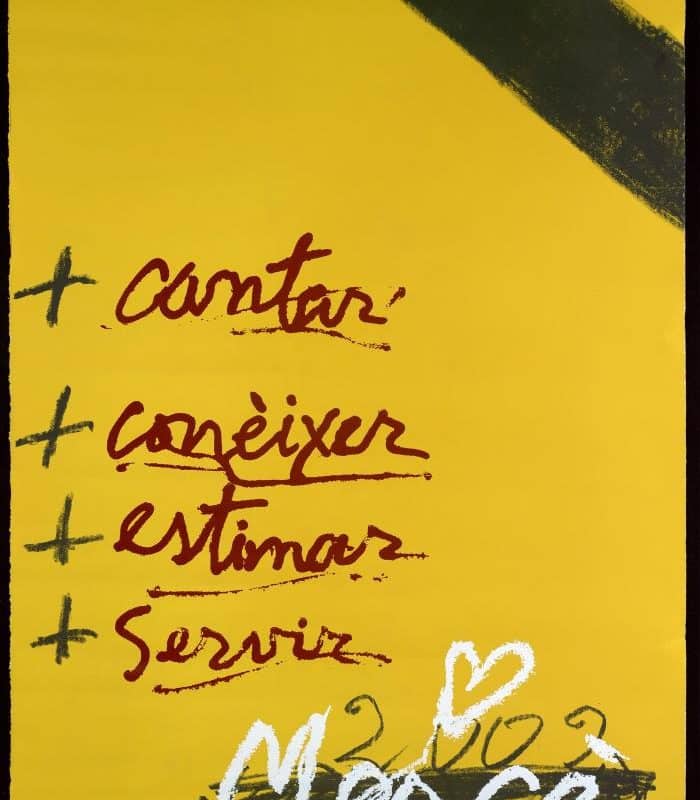 + cantar
+ conèixer
+ estimar
+ Servir
2002
Mercè